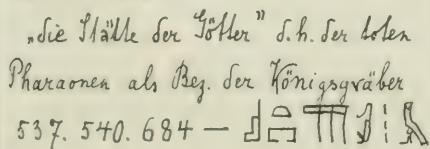 „die Stätte der Götter” d.h. der toten
Pharaonen als Bez. der Königsgräber
537. 540. 684 —